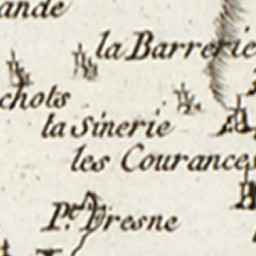 ande
la Barrerie
chots
la Sinerie
les Courances
P.te Dresne